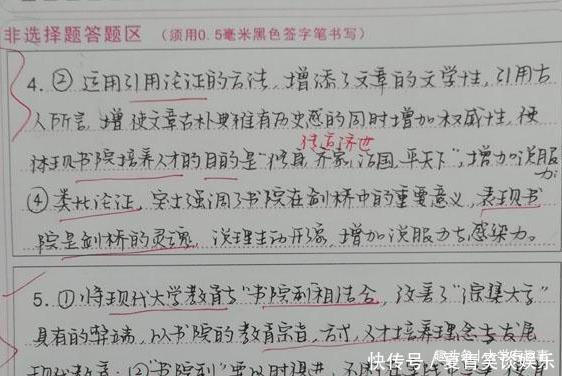 非选择题答题区 (须用0.5毫米黑色签字笔书写)
4. ② 运用引用论证的方法, 增添了文章的文学性, 引用古
人所言, 增使文章古朴典雅有历史感的同时增加权威性, 使
传直济世
体现书院培养人才的目的是“修身, 齐家, 治国, 平天下”, 增加说服
力
④ 类比论证, 突出强调了书院在剑桥中的重要意义, 表现书
院是剑桥的灵魂, 说理生动形象, 增加说服力与感染力。
5. ①将现代大学教育与“书院制相结合, 改善了“综集大学”
具有的弊端, 从书院的教育宗旨, 方式, 人才培养理念与发展
现代教育; ②“书院制”要以时
快传号/夏哥笑谈娱乐